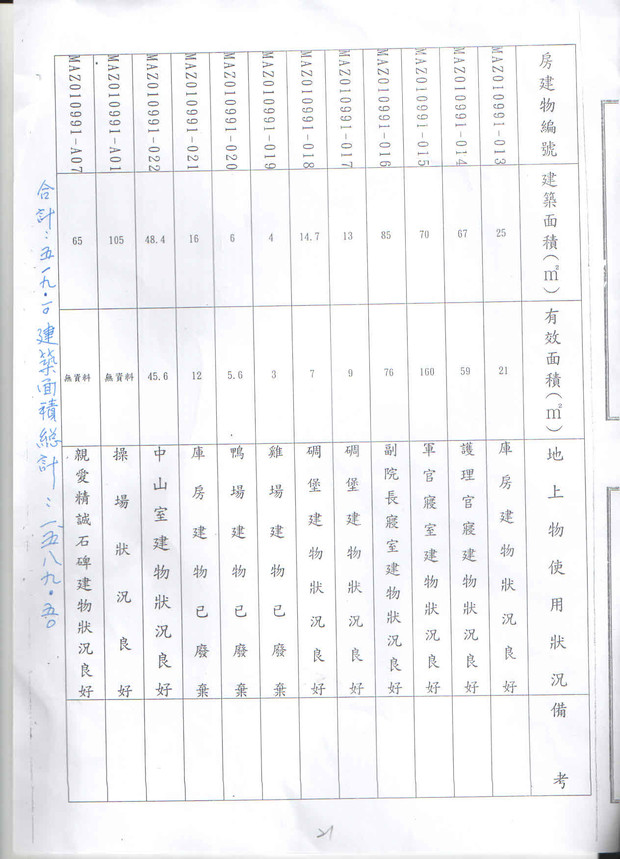 房建物編號 建築面積(㎡) 有效面積(㎡) 地上物使用狀況 備考
MAZ010991-013 25 21 庫房建物狀況良好
MAZ010991-014 67 59 護理官寢建物狀況良好
MAZ010991-015 70 160 軍官寢室建物狀況良好
MAZ010991-016 85 76 副院長寢室建物狀況良好
MAZ010991-017 13 9 碉堡建物狀況良好
MAZ010991-018 14.7 7 碉堡建物狀況良好
MAZ010991-019 4 3 雞場建物已廢棄
MAZ010991-020 6 5.6 鴨場建物已廢棄
MAZ010991-021 16 12 庫房建物已廢棄
MAZ010991-022 48.4 45.6 中山室建物狀況良好
MAZ010991-A01 105 無資料 操場狀況良好
MAZ010991-A07 65 無資料 親愛精誠石碑建物狀況良好
合計:五一九.一0 建築面積総計:一、五八九.五0
21